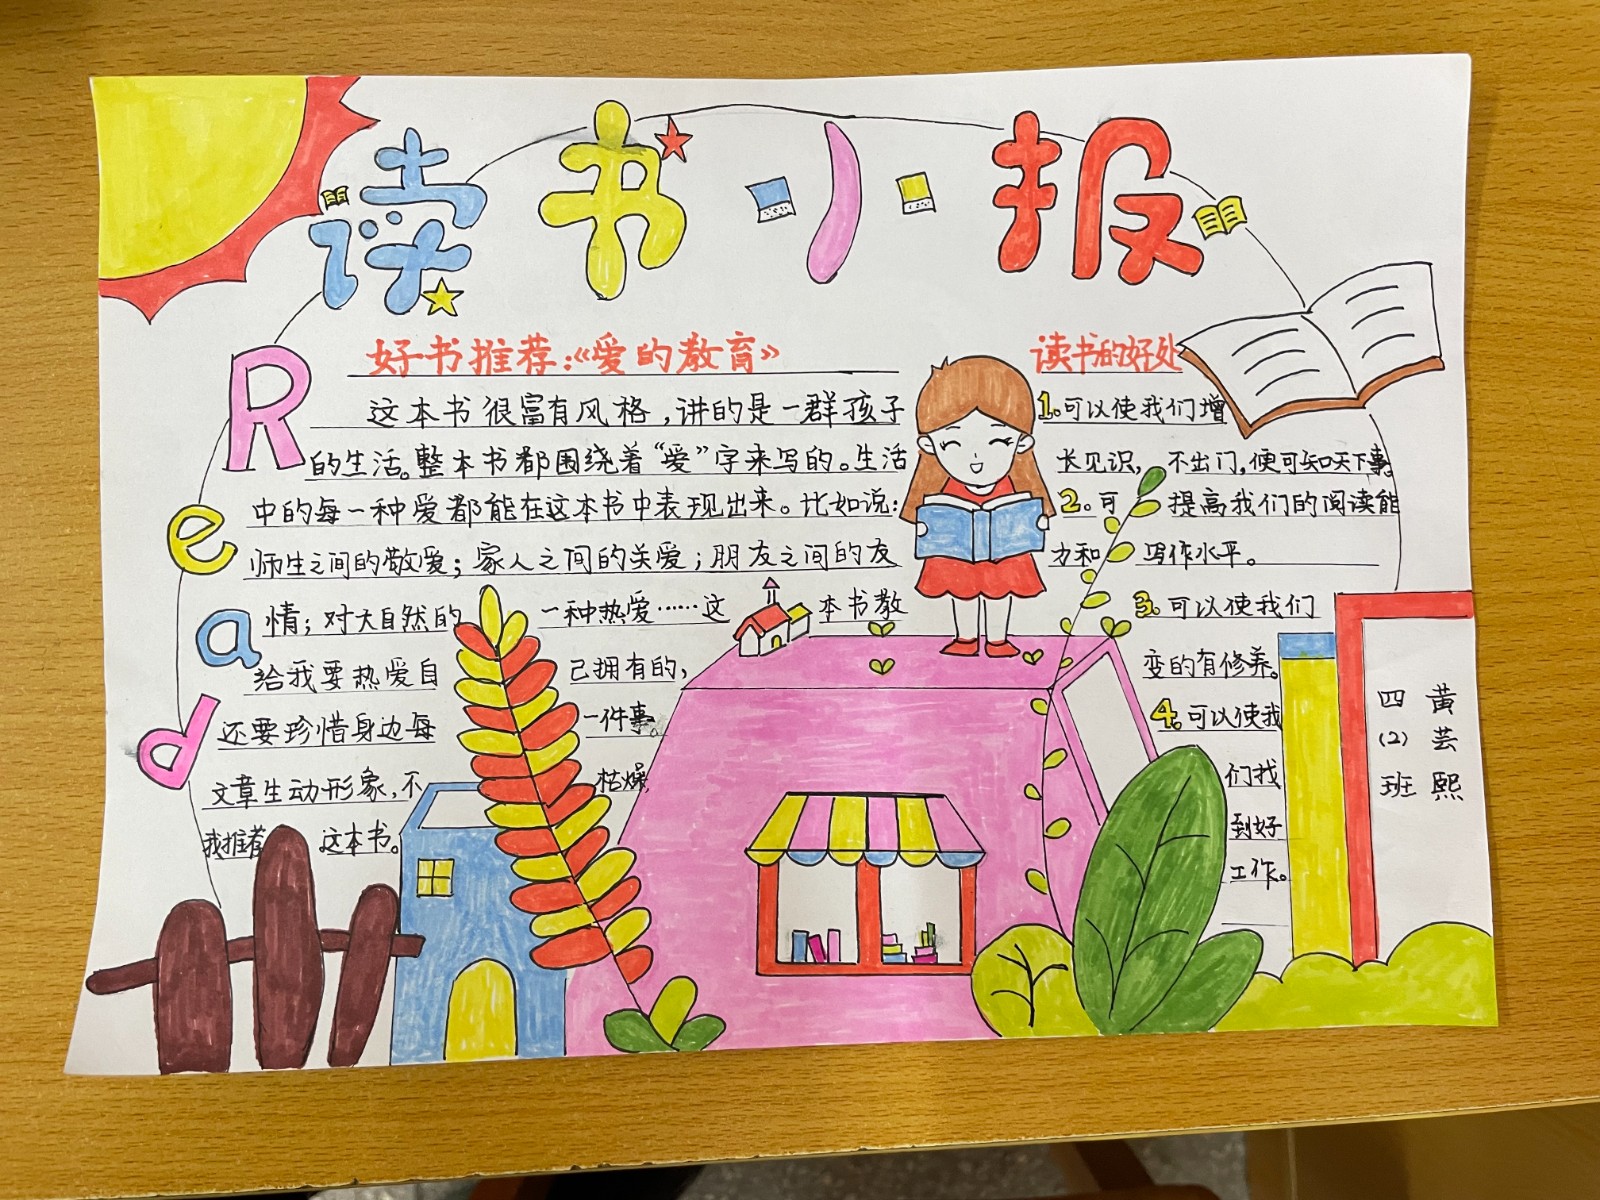 读书小报
Read
好书推荐:《爱的教育》
这本书很富有风格,讲的是一群孩子
的生活。整本书都围绕着“爱”字来写的。生活
中的每一种爱都能在这本书中表现出来。比如说:
师生之间的敬爱;家人之间的关爱;朋友之间的友
情;对大自然的一种热爱……这本书教
给我要热爱自己拥有的,
还要珍惜身边每一件事。
文章生动形象,不枯燥,
我推荐这本书。
读书的好处
1.可以使我们增
长见识,不出门,便可知天下事。
2.可提高我们的阅读能
力和写作水平。
3.可以使我们
变的有修养。
4.可以使我
们找
到好
工作。
四(2)班
黄芸熙